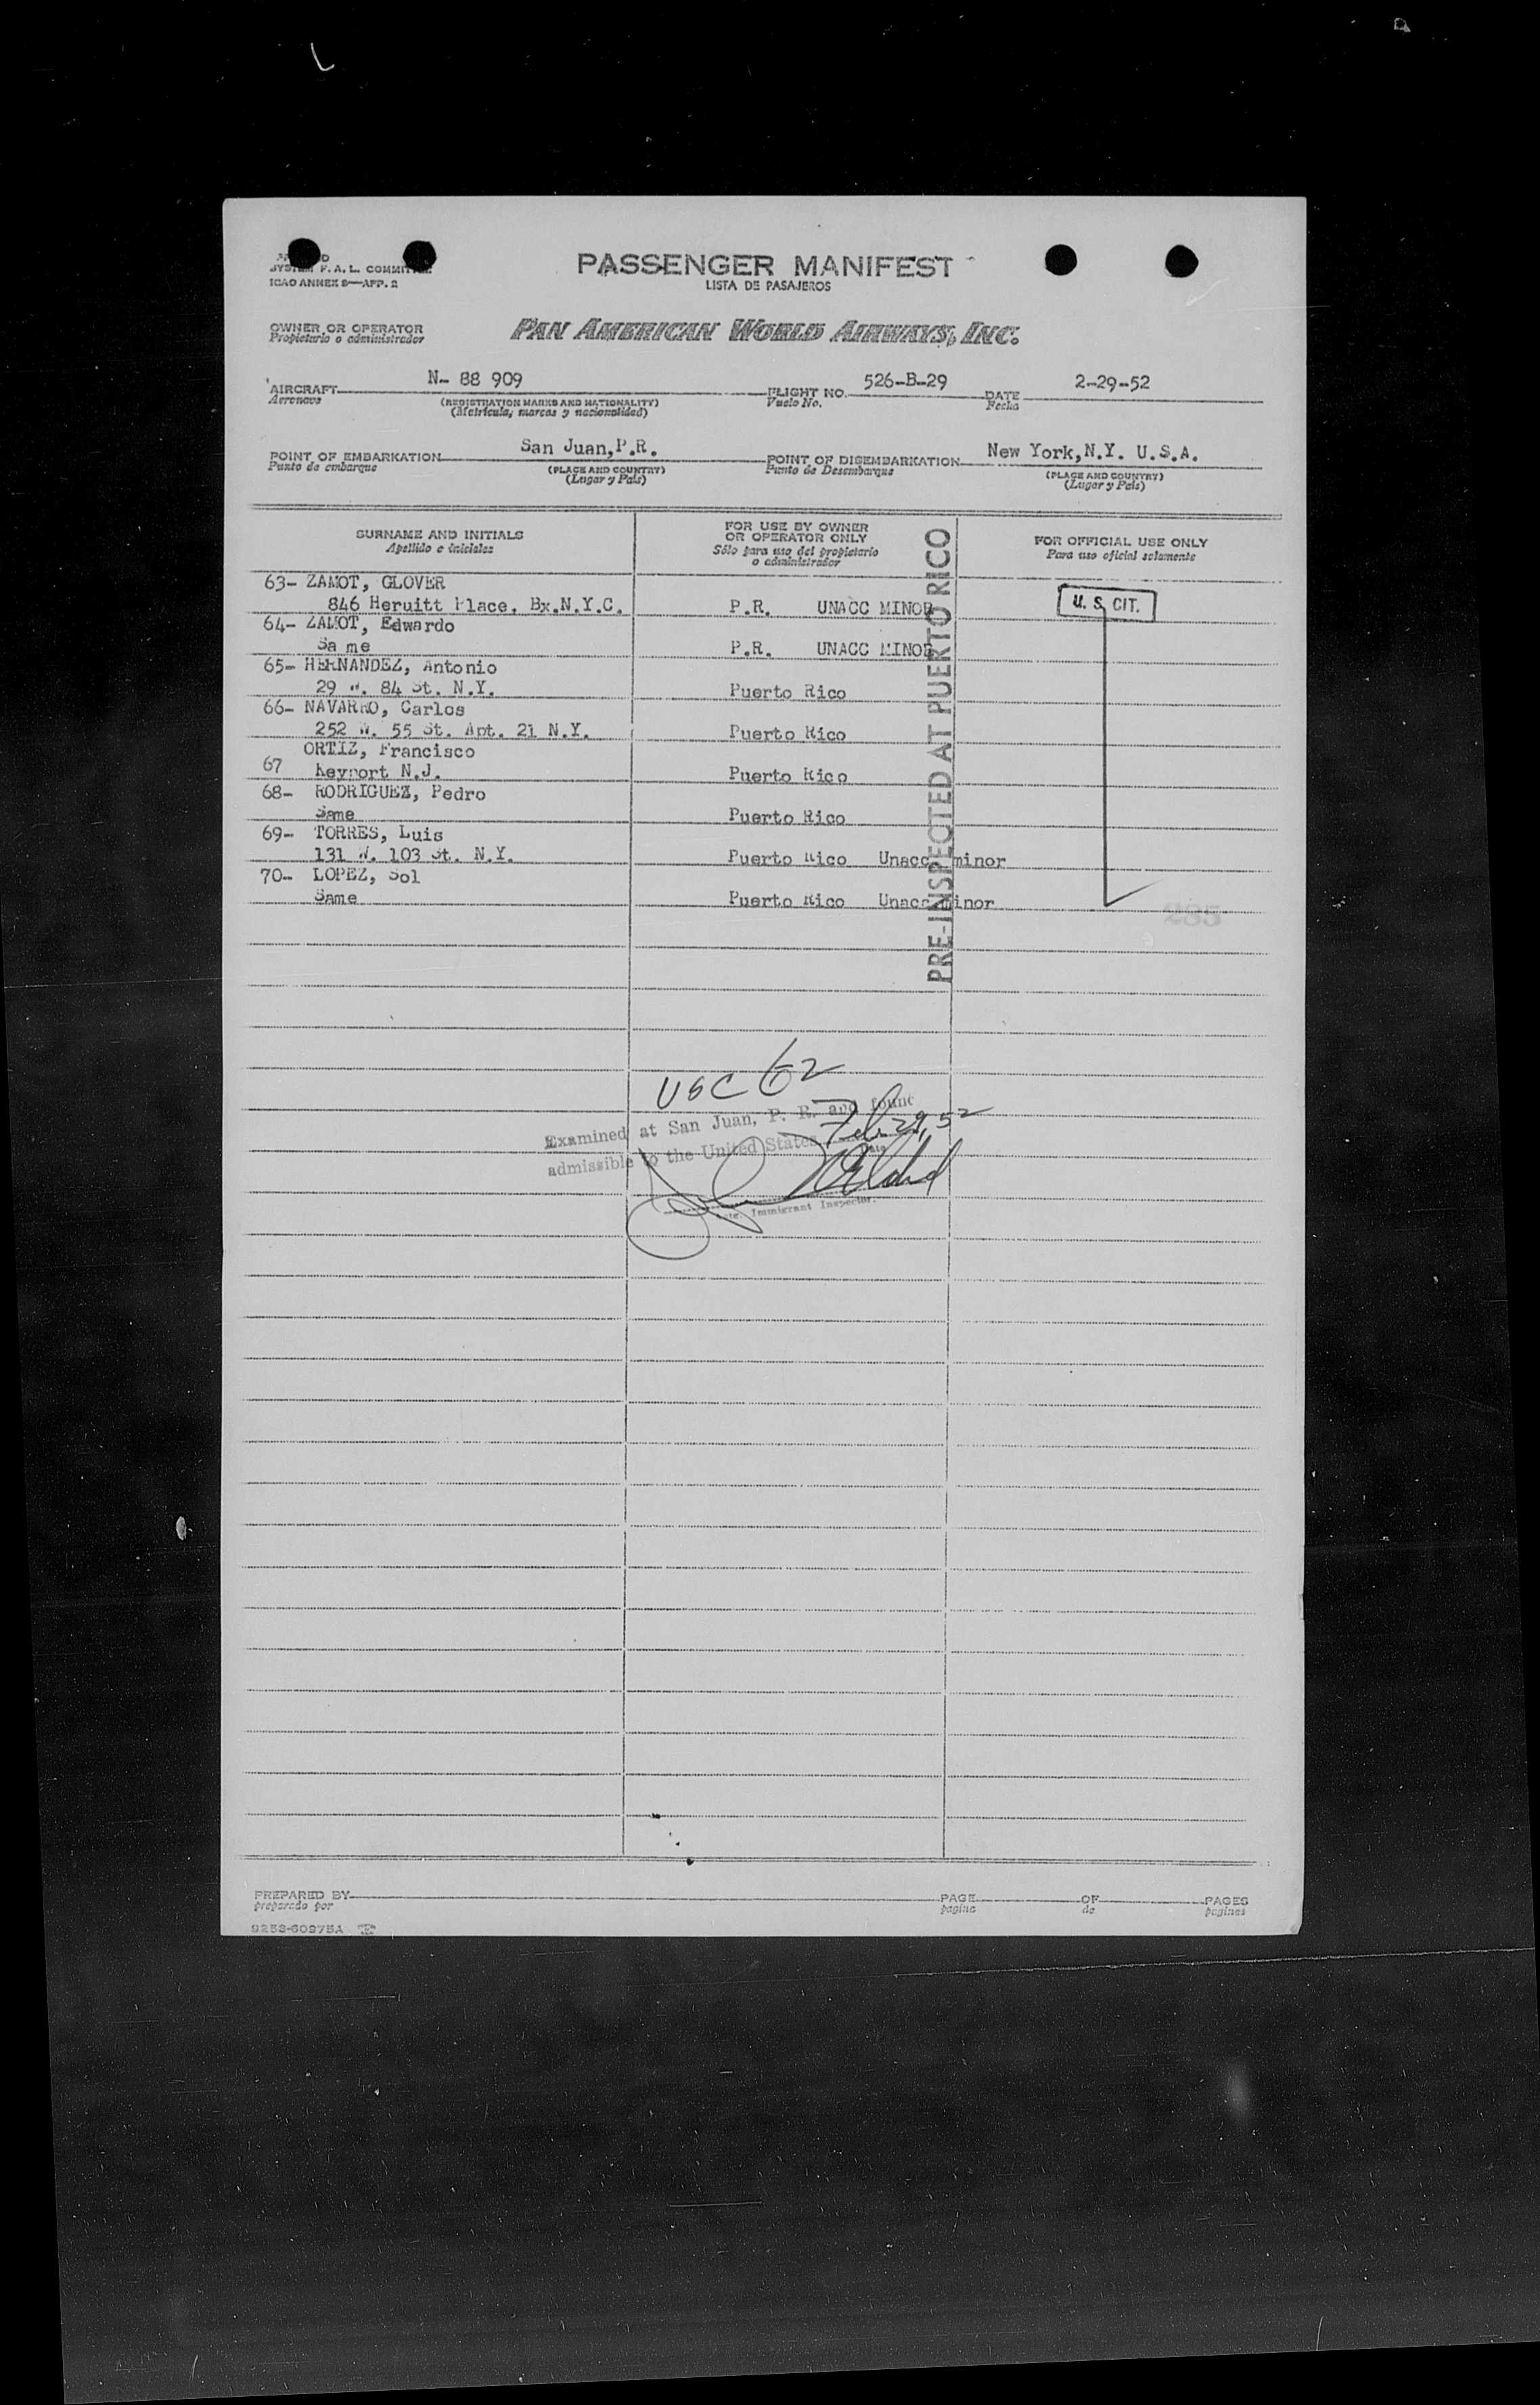 SYSTEM F. A. L. COMMITTEE
ICAO ANNEX 9—APP. 2
PASSENGER MANIFEST
LISTA DE PASAJEROS
OWNER OR OPERATOR
Propietario o administrador
PAN AMERICAN WORLD AIRWAYS, INC.
AIRCRAFT N- 88 909 FLIGHT NO. 526-B-29 DATE 2-29-52
Aeronave (REGISTRATION MARKS AND NATIONALITY) Vuelo No. Fecha
(Matricula, marcas y nacionalidad)
POINT OF EMBARKATION San Juan,P.R. POINT OF DISEMBARKATION New York,N.Y. U.S.A.
Punto de embarque (PLACE AND COUNTRY) Punto de Desembarque (PLACE AND COUNTRY)
(Lugar y Pais) (Lugar y Pais)
SURNAME AND INITIALS FOR USE BY OWNER OR OPERATOR ONLY FOR OFFICIAL USE ONLY
Apellido e iniciales Sólo para uso del propietario o administrador Para uso oficial solamente
PRE-INSPECTED AT PUERTO RICO
63- ZAMOT, GLOVER
846 Heruitt Place. Bx.N.Y.C. P.R. UNACC MINOR U. S. CIT.
64- ZAMOT, Edwardo
Sa me P.R. UNACC MINOR
65- HERNANDEZ, Antonio
29 W. 84 St. N.Y. Puerto Rico
66- NAVARRO, Carlos
252 W. 55 St. Apt. 21 N.Y. Puerto Rico
ORTIZ, Francisco
67 Keyport N.J. Puerto Rico
68- RODRIGUEZ, Pedro
Same Puerto Rico
69- TORRES, Luis
131 W. 103 St. N.Y. Puerto Rico Unacc minor
70- LOPEZ, Sol
Same Puerto Rico Unacc minor
285
USC 62
Examined at San Juan, P. R. and found
admissible to the United States Feb. 29, 52
Immigrant Inspector.
PREPARED BY PAGE OF PAGES
preparado por pagina de paginas
9253-60975A